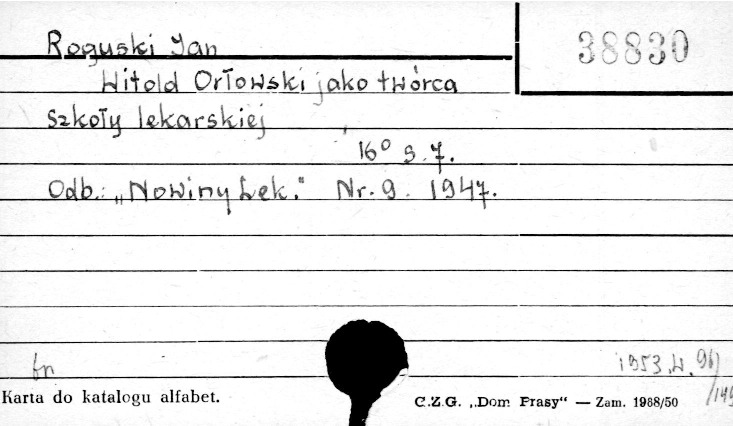 38830
Roguski Jan
Witold Orłowski jako twórca
szkoły lekarskiej
16° s. 7.
Odb.: „Nowiny Lek." Nr. 9. 1947.
1953. W. 96/
Karta do katalogu alfabet.
C.Z.G. „Dom Prasy“ — Zam. 1988/50